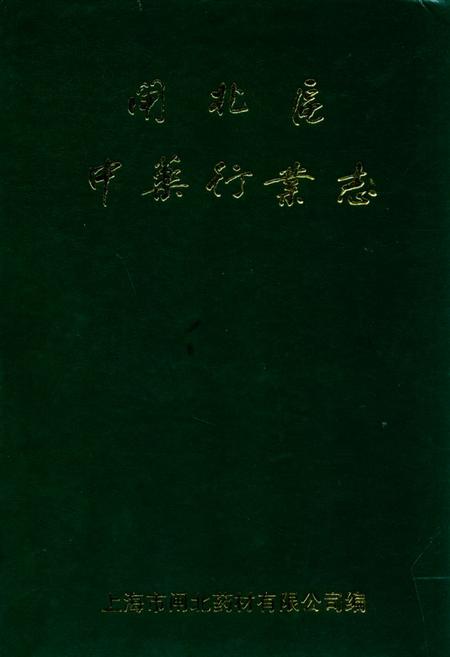 闸北区
中药行业志
上海市闸北药材有限公司编